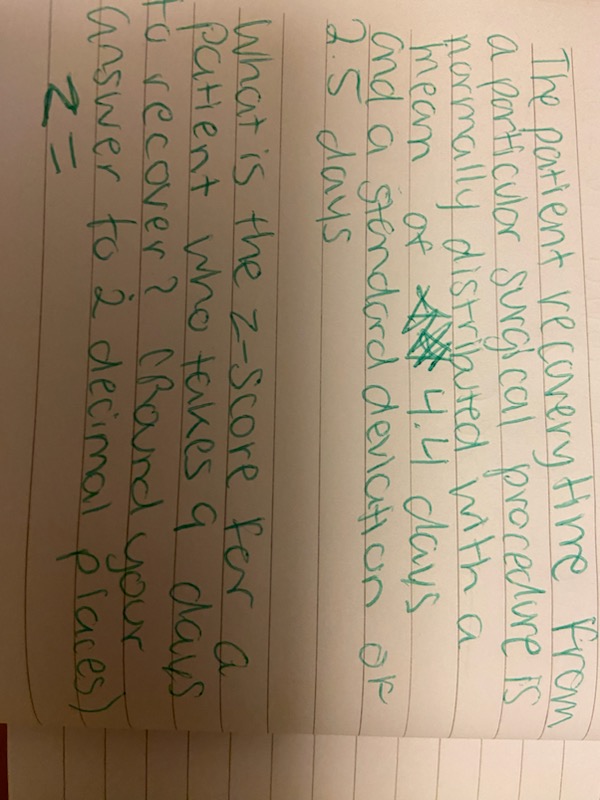 The patient recovery time from
a particular surgical procedure is
normally distributed with a
mean of 4.4 days
and a standard deviation of
2.5 days
What is the z-score for a
patient who takes 9 days
to recover? (Round your
answer to 2 decimal places)
z =